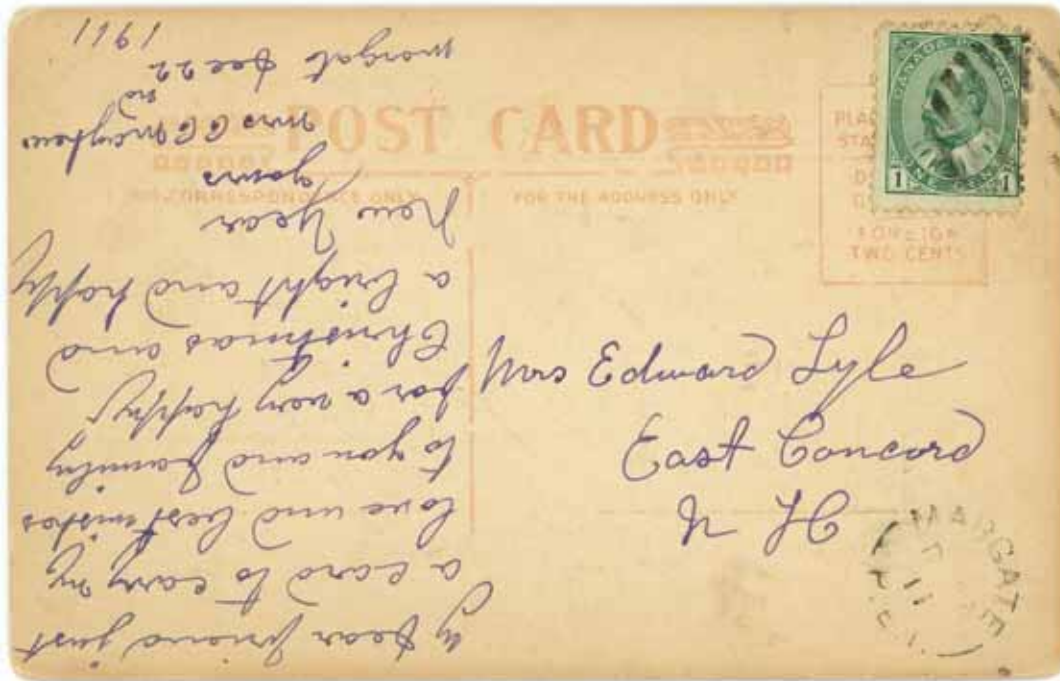 POST CARD
CORRESPONDENCE ONLY
FOR THE ADDRESS ONLY
FOREIGN
TWO CENTS
CANADA POSTAGE
1 1
Mrs Edward Lyle
East Concord
N H
MARGATE
11
P.E.I.
y dear friend just
a card to carry my
love and best wishes
to you and family
for a very happy
Christmas and
a bright and happy
New Year
yours
Mrs C C Mayhew
morgat Dec 22 nd
1911